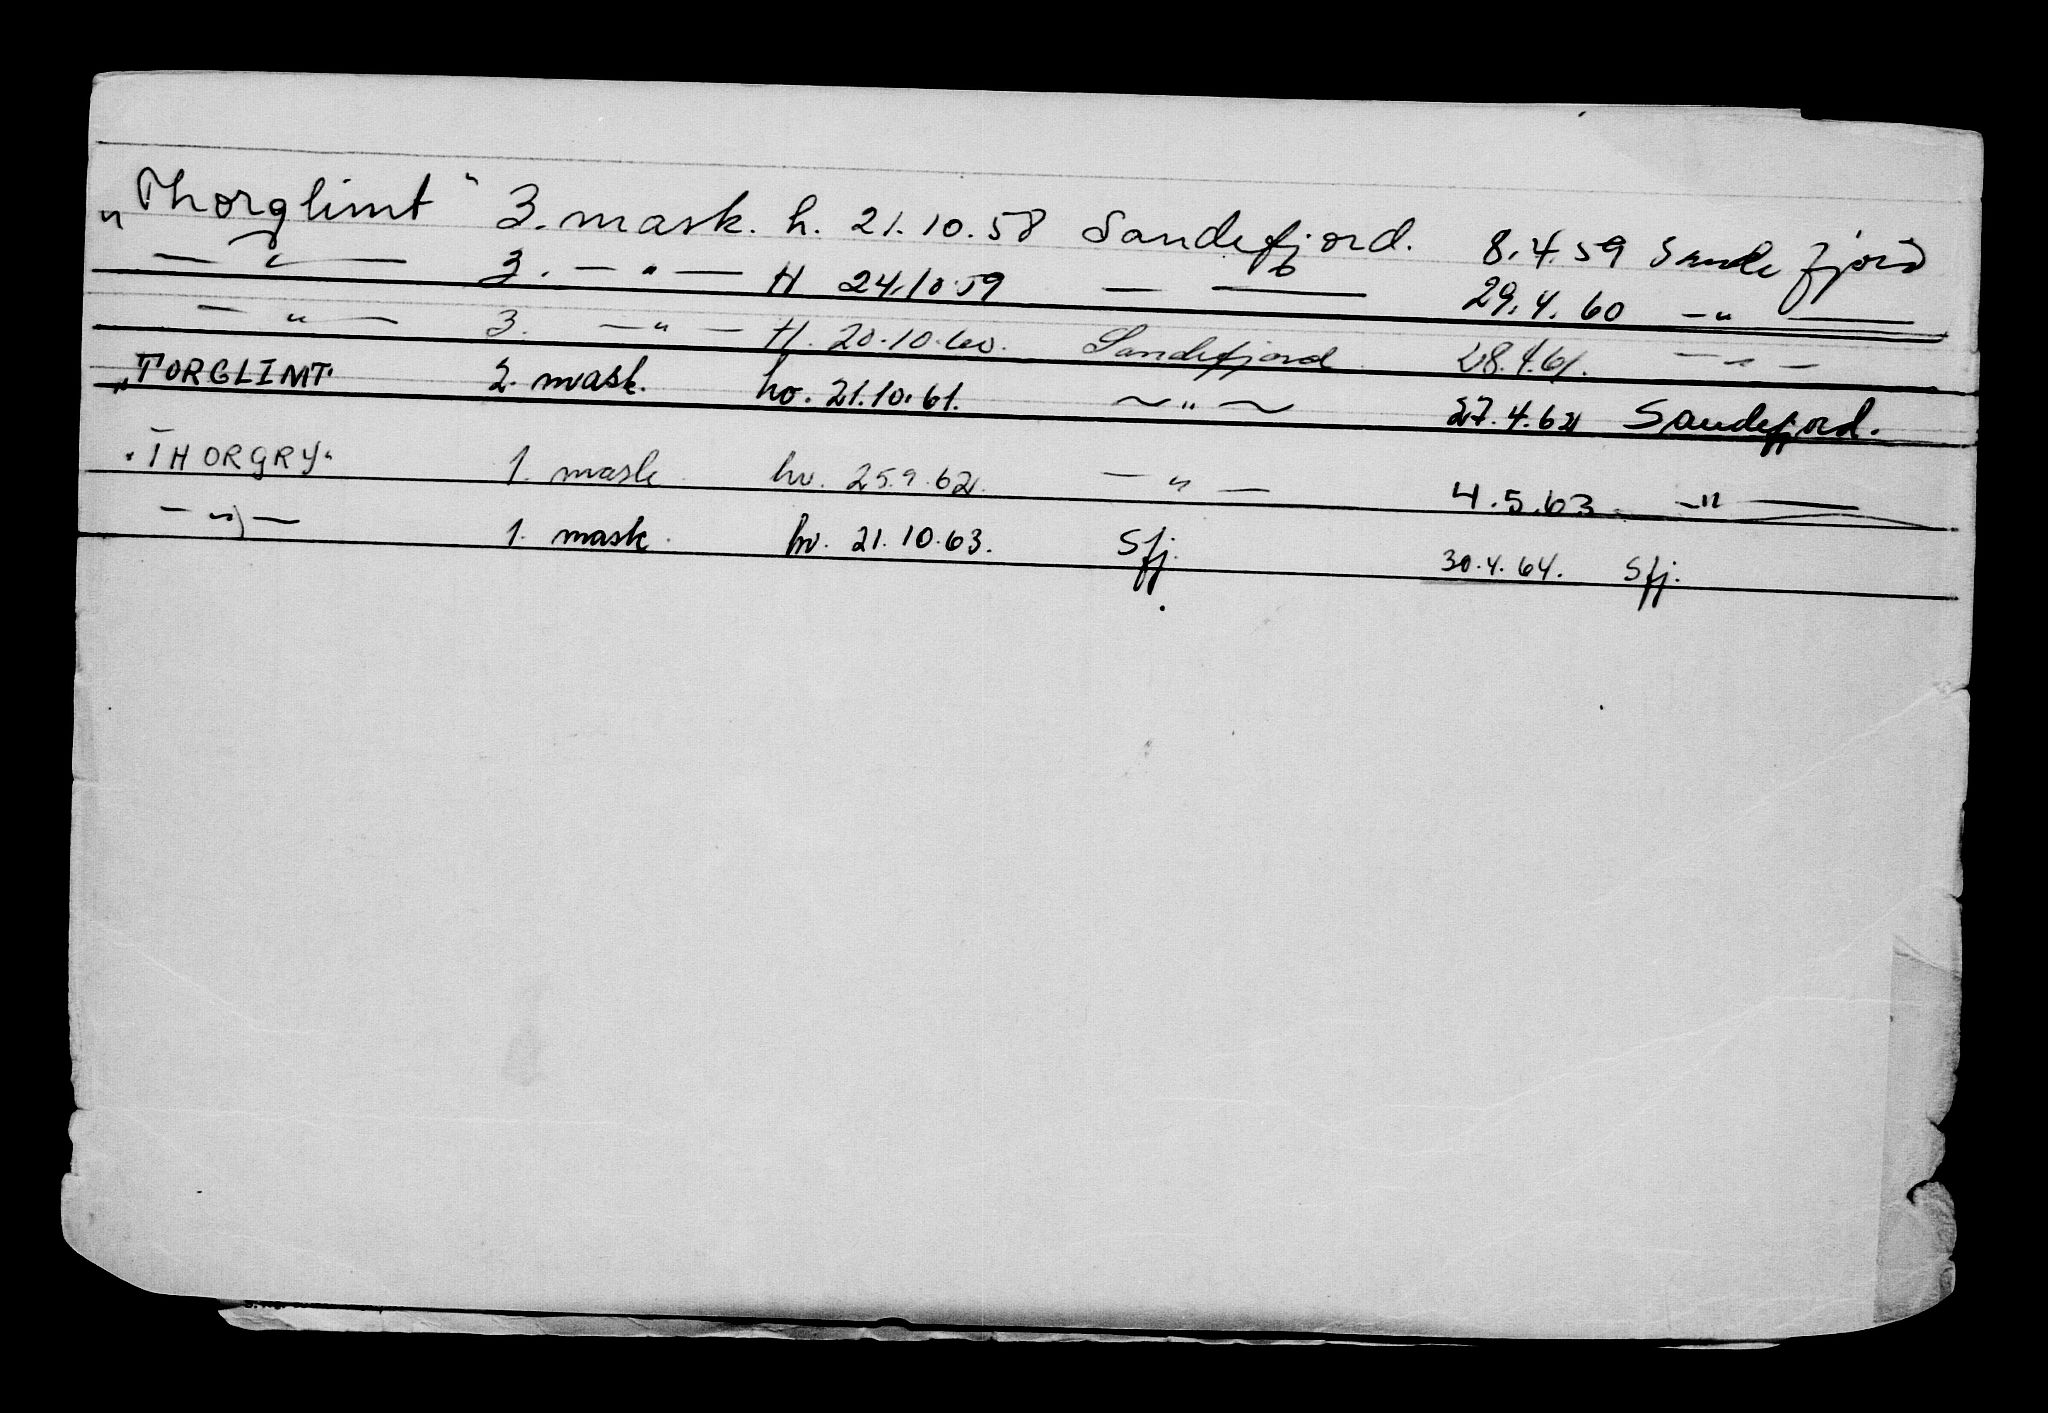 „Thorglimt" 3. mask. h. 21.10.58 Sandefjord. 8.4.59 Sandefjord
— " — 3. — " — H 24.10.59 — " — 29.4.60 — " —
— " — 3. — " — H. 20.10.60. Sandefjord. 28.4.61. — " —
„TORGLIMT" 2. mask. hv. 21.10.61. — " — 27.4.62 Sandefjord.
"THORGRY" 1. mask. hv. 25.9.62. — " — 4.5.63. — " —
— " — 1. mask. hv. 21.10.63. Sfj. 30.4.64. Sfj.